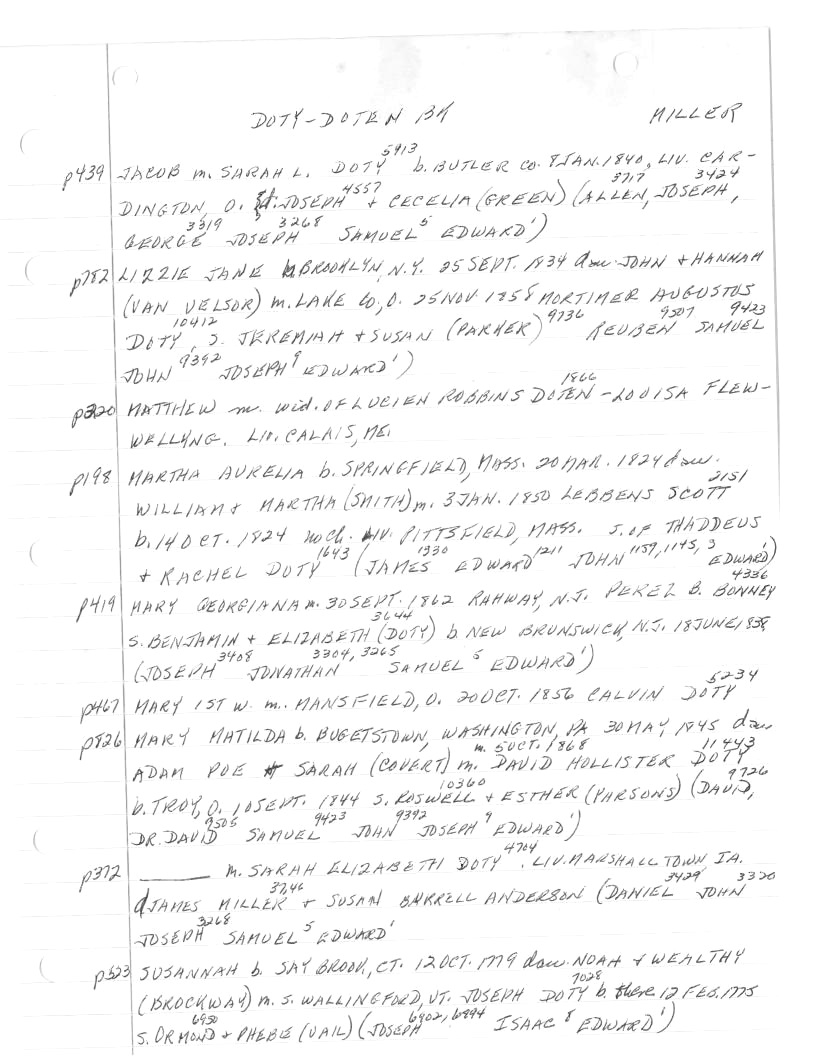 DOTY-DOTEN BK MILLER
p439 JACOB m. SARAH L. DOTY 5913 b. BUTLER CO. 8 JAN. 1840, LIV. CAR-
DINGTON, O. JOSEPH 4557 + CECELIA (GREEN) (ALLEN, 3717 JOSEPH, 3424
GEORGE 3319 JOSEPH 3268 SAMUEL 5 EDWARD 1)
p782 LIZZIE JANE b. BROOKLYN, N.Y. 25 SEPT. 1834 dau JOHN + HANNAH
(VAN VELSOR) m. LAKE CO, O. 25 NOV. 1858 MORTIMER AUGUSTUS
DOTY 10412, S. JEREMIAH + SUSAN (PARKER) 9736 REUBEN 9507 SAMUEL 9423
JOHN 9392 JOSEPH 9 EDWARD 1)
p320 MATTHEW m. wid. OF LUCIEN ROBBINS DOTEN 1866 - LOUISA FLEW-
WELLYNG. LIV. CALAIS, ME.
p198 MARTHA AURELIA b. SPRINGFIELD, MASS. 20 MAR. 1824 dau.
WILLIAM + MARTHA (SMITH) m. 3 JAN. 1850 LEBBENS SCOTT 2151
b. 14 OCT. 1824 no ch. LIV. PITTSFIELD, MASS. S. OF THADDEUS
+ RACHEL DOTY 1643 (JAMES 1330 EDWARD 1211 JOHN 1159, 1145, 3 EDWARD 1)
p419 MARY GEORGIANA m. 30 SEPT. 1862 RAHWAY, N.J. PEREZ B. BONNEY 4336
S. BENJAMIN + ELIZABETH (DOTY) 3644 b. NEW BRUNSWICK, N.J. 18 JUNE 1838
(JOSEPH 3408 JONATHAN 3304, 3265 SAMUEL 5 EDWARD 1)
p467 MARY 1ST W. m. MANSFIELD, O. 20 OCT. 1856 CALVIN DOTY 5234
p826 MARY MATILDA b. BUGETSTOWN, WASHINGTON, PA 30 MAY, 1845 dau
ADAM POE + SARAH (COVERT) m. 5 OCT. 1868 DAVID HOLLISTER DOTY 11443
b. TROY, O. 10 SEPT. 1844 S. ROSWELL 10360 + ESTHER (PARSONS) (DAVID, 9726
DR. DAVID 9505 SAMUEL 9423 JOHN 9392 JOSEPH 9 EDWARD 1)
p372 ______ m. SARAH ELIZABETH DOTY 4704. LIV. MARSHALL TOWN, IA.
d JAMES MILLER 3746 + SUSAN BURRELL ANDERSON (DANIEL 3429 JOHN 3320
JOSEPH 3268 SAMUEL 5 EDWARD 1
p523 SUSANNAH b. SAYBROOK, CT. 12 OCT. 1779 dau. NOAH + WEALTHY
(BROCKWAY) m. S. WALLINGFORD, VT. JOSEPH DOTY 7028 b. there 12 FEB. 1775
S. ORMOND 6950 + PHEBE (VAIL) (JOSEPH 6902, 6894 ISAAC 8 EDWARD 1)